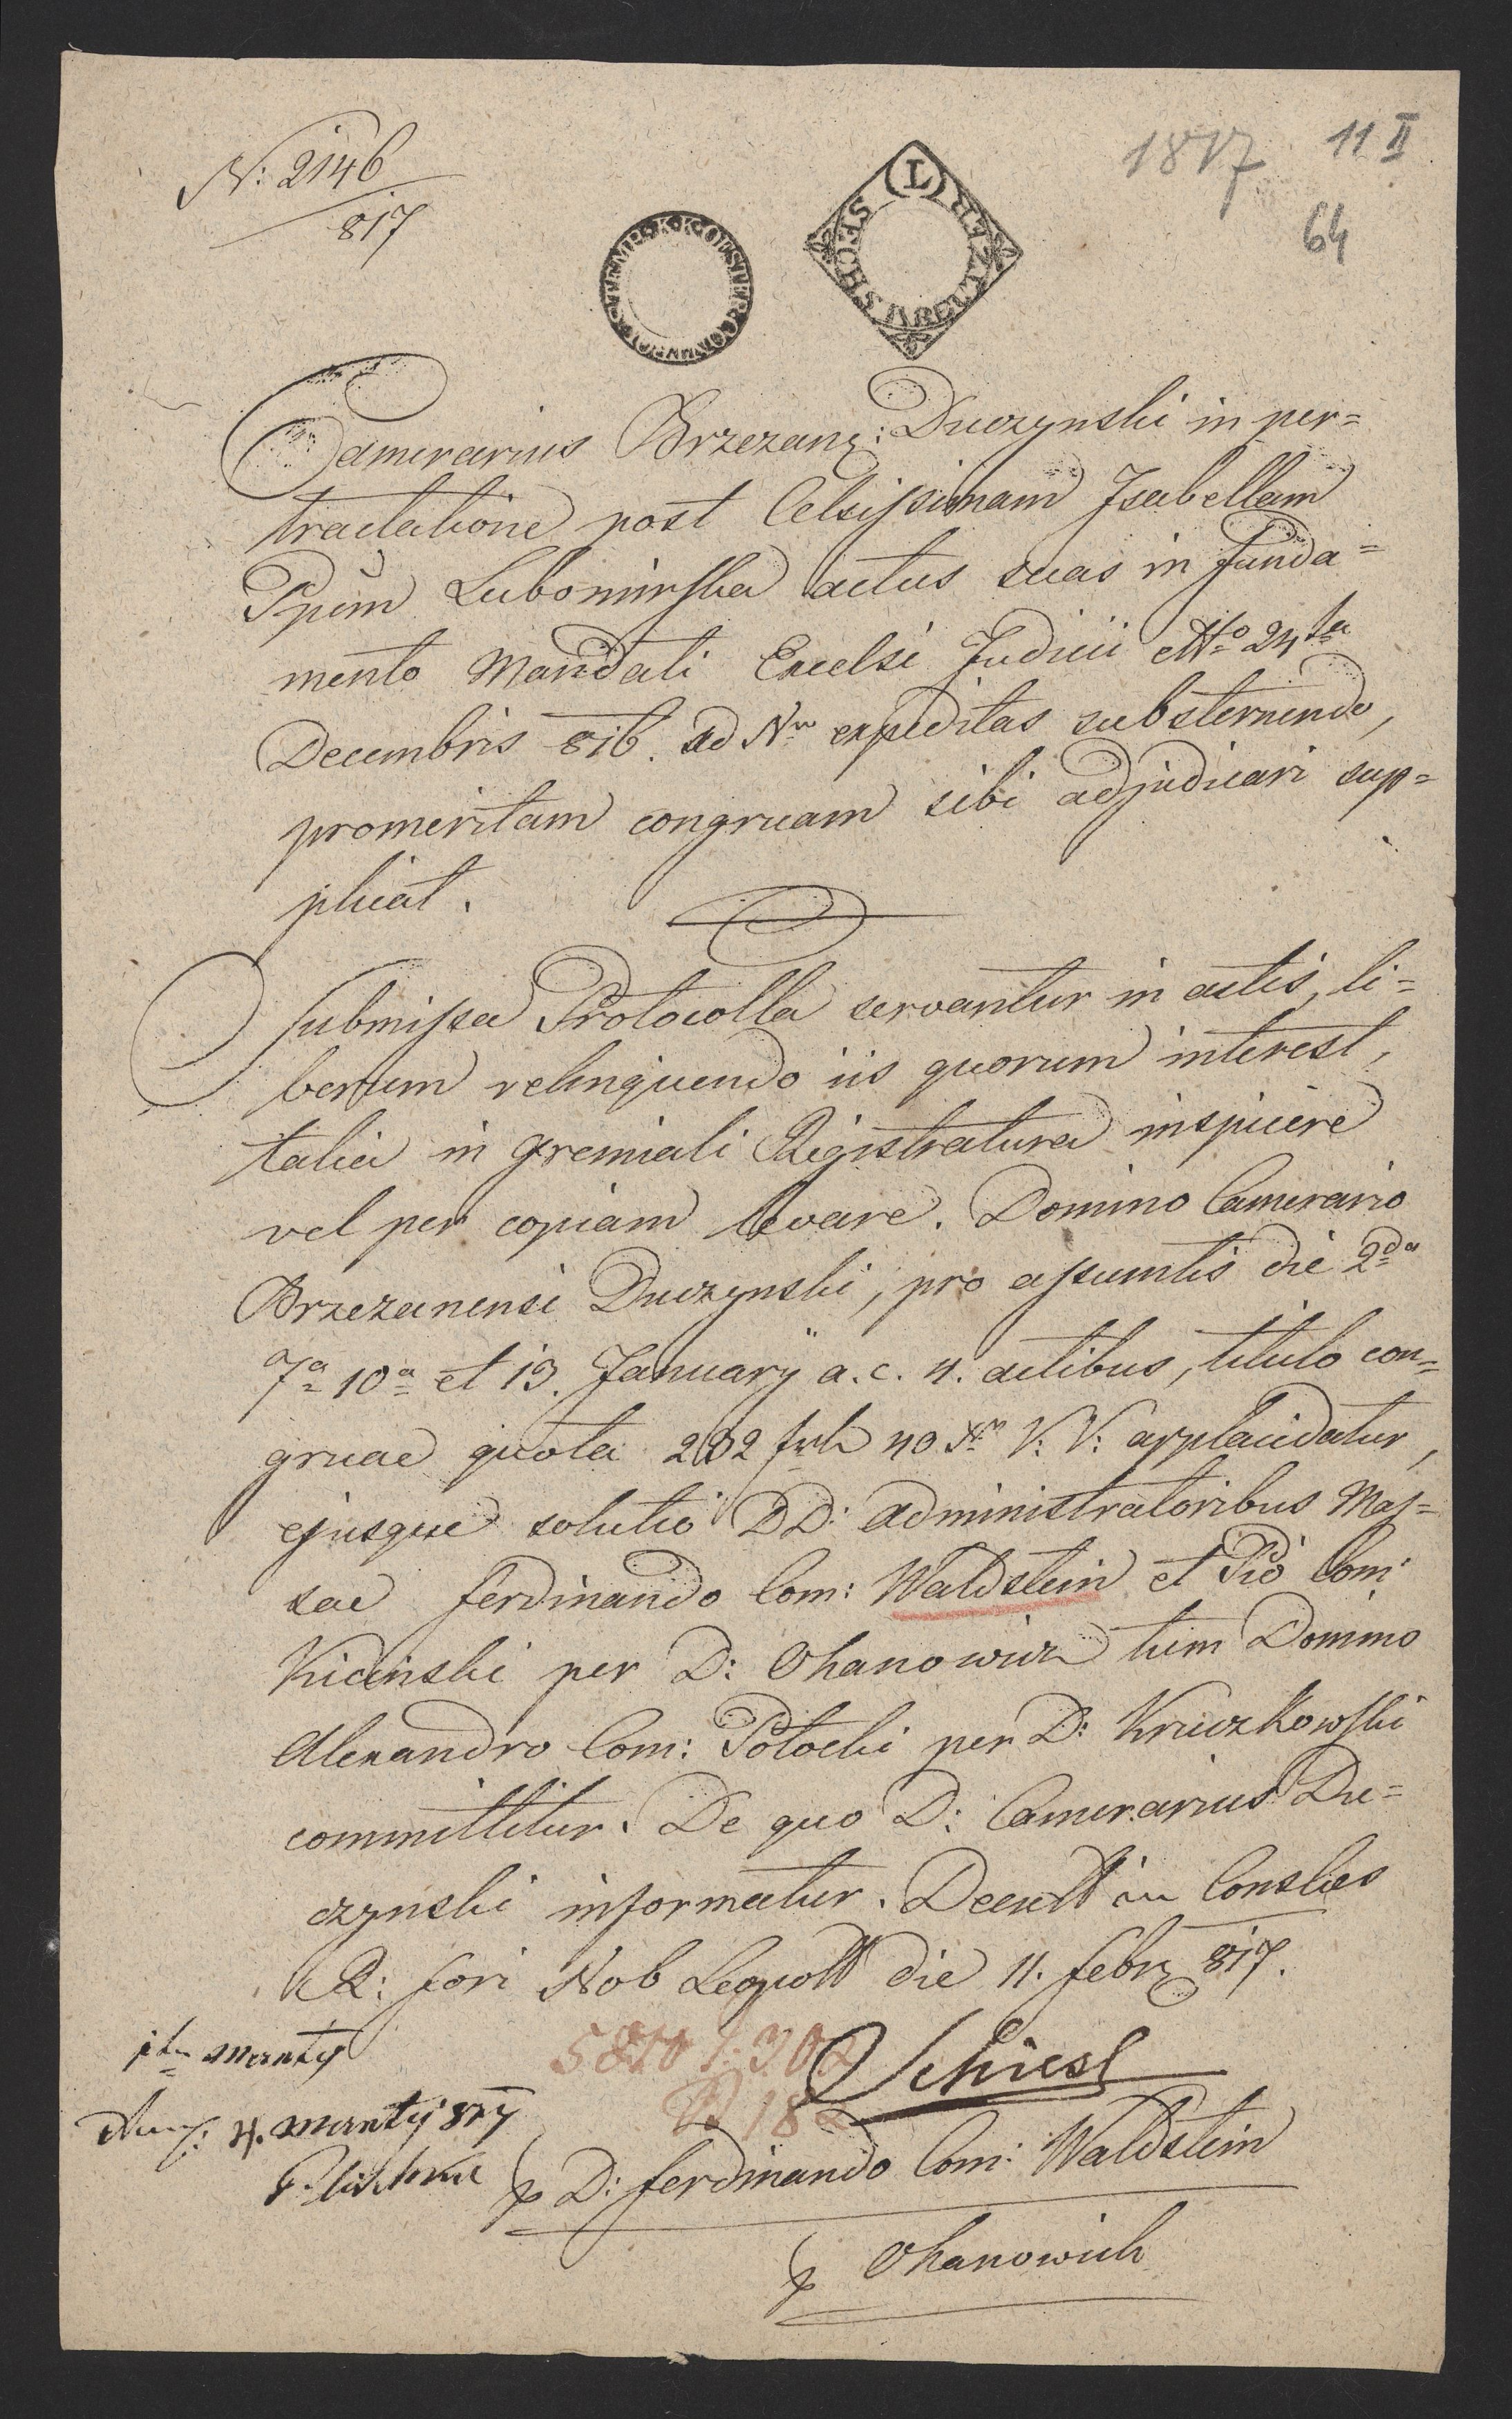 N: 2146
817
1817
11 II
64
SECHS KREUTZER (L)
Camerarius Brzezanz: Duczynski in per=
tractatione post Celsissimam Isabellam
Ppim Lubomirska actus suas in funda=
mento Mandati Excelsi Judicii Dto 24ta
Decembris 816. ad Nrum expeditas substernendo,
promeritam congruam sibi adjudicari sup=
plicat.
Submissa Protocolla servantur in actis, li=
berum relinquendo iis quorum interest,
talia in gremiali Registratura inspicere
vel per copiam levare. Domino Camerario
Brzezanensi Duczynski, pro assumtis die 2da
7a 10a et 13. Januarÿ a. c. 4. actibus, titulo con=
gruae quota 202 frh 40 Xr V: V: applaudatur,
ejusque solutio DD: Administratoribus Mas=
sae Ferdinando Com: Waldstein et Pio Com:
Kicinski per D: Ohanowicz tum Domino
Alexandro Com: Potocki per D: Kruczkowski
committitur. De quo D: Camerarius Du=
czynski informatur. Decret in Conslies
C: R: Fori Nob Leopolt die 11. Febr 817.
Schiesl
D: Ferdinando Com: Waldstein
Ohanowich